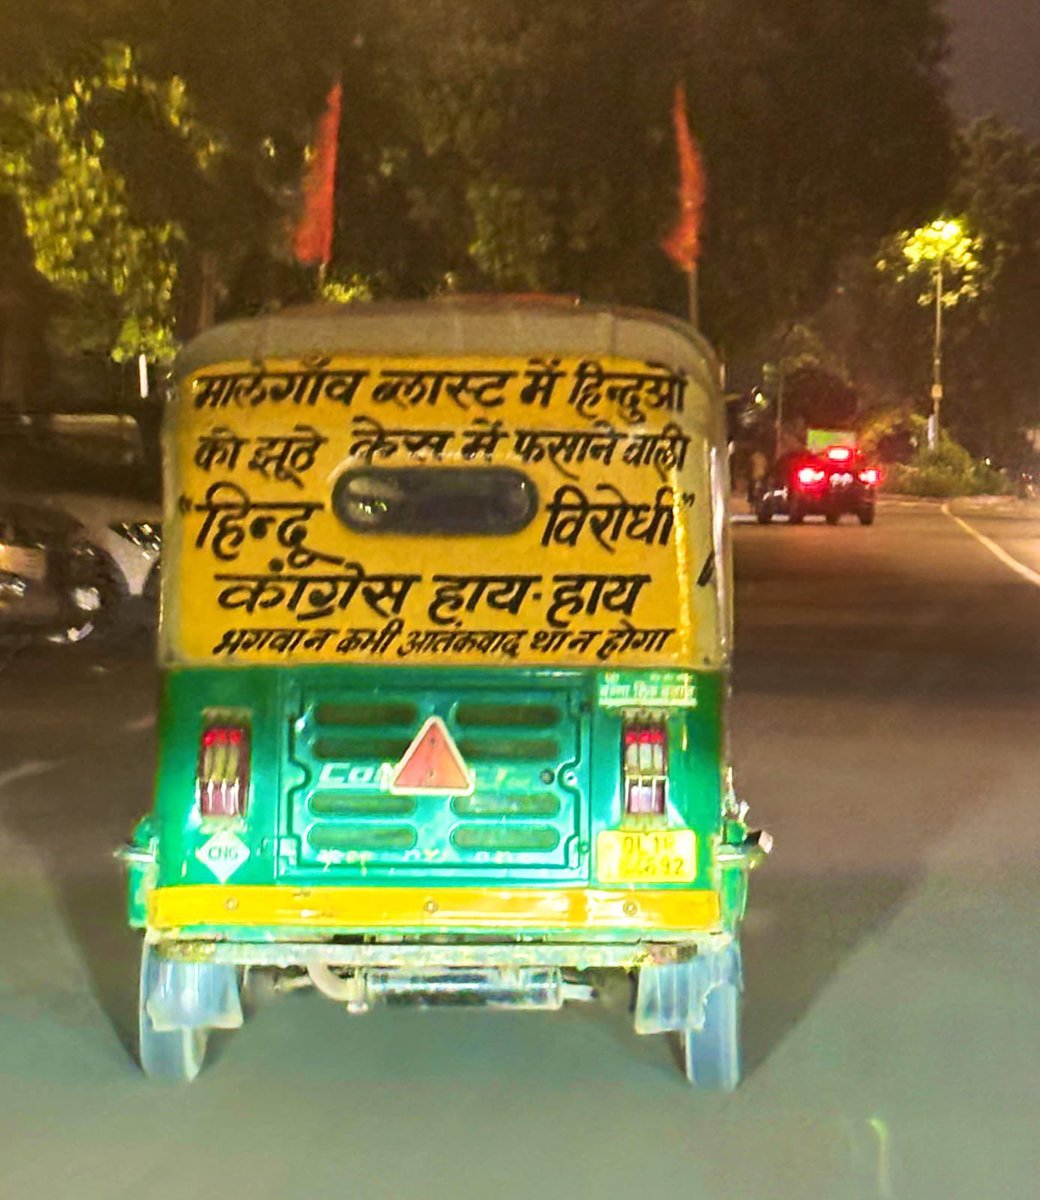 मालेगाँव ब्लास्ट में हिन्दुओं
को झूठे केस में फसाने वाली
"हिन्दू विरोधी"
कांग्रेस हाय-हाय
भगवा न कभी आतंकवाद था न होगा
CNG